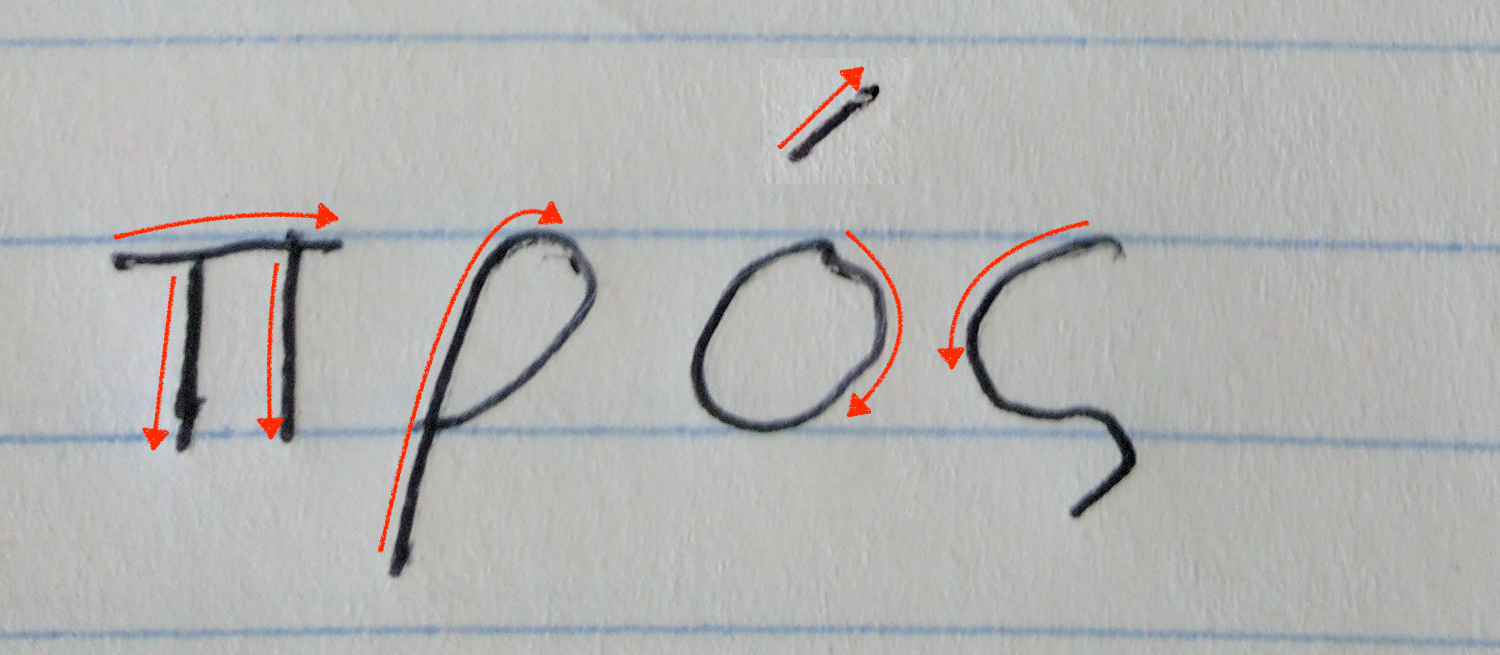 πρός